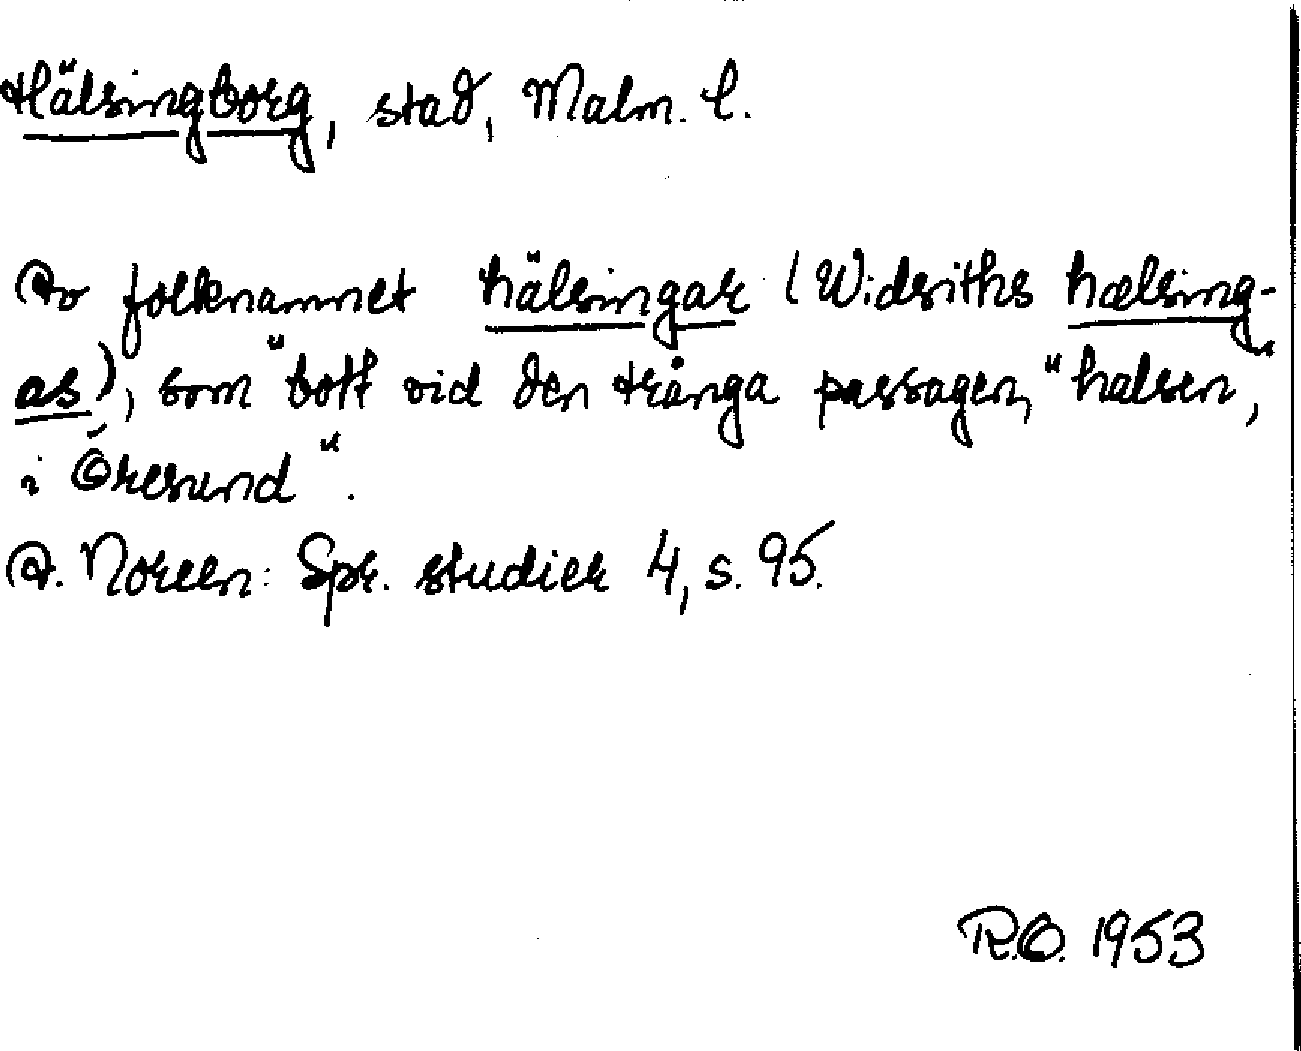 Hälsingborg, stad, Malm. l.
Av folknamnet hälsingar (Widsiths hælsing-
as), som "bott vid den trånga passagen, "halsen,"
i Öresund".
A. Noreen: Spr. studier 4, s. 95.
R.O. 1953